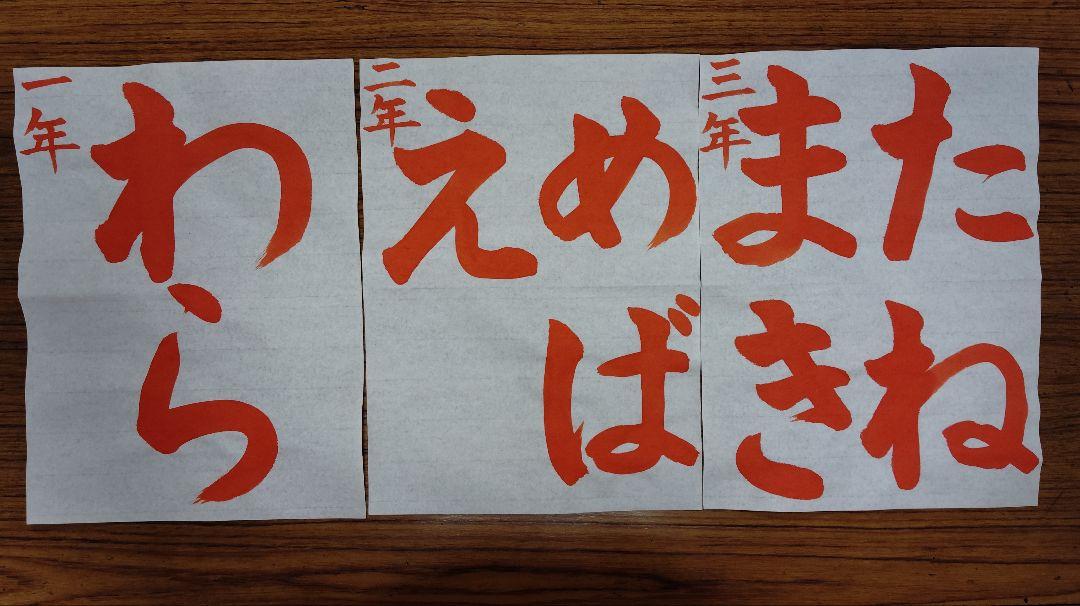 三年
たね
まき
二年
めば
え
一年
わら